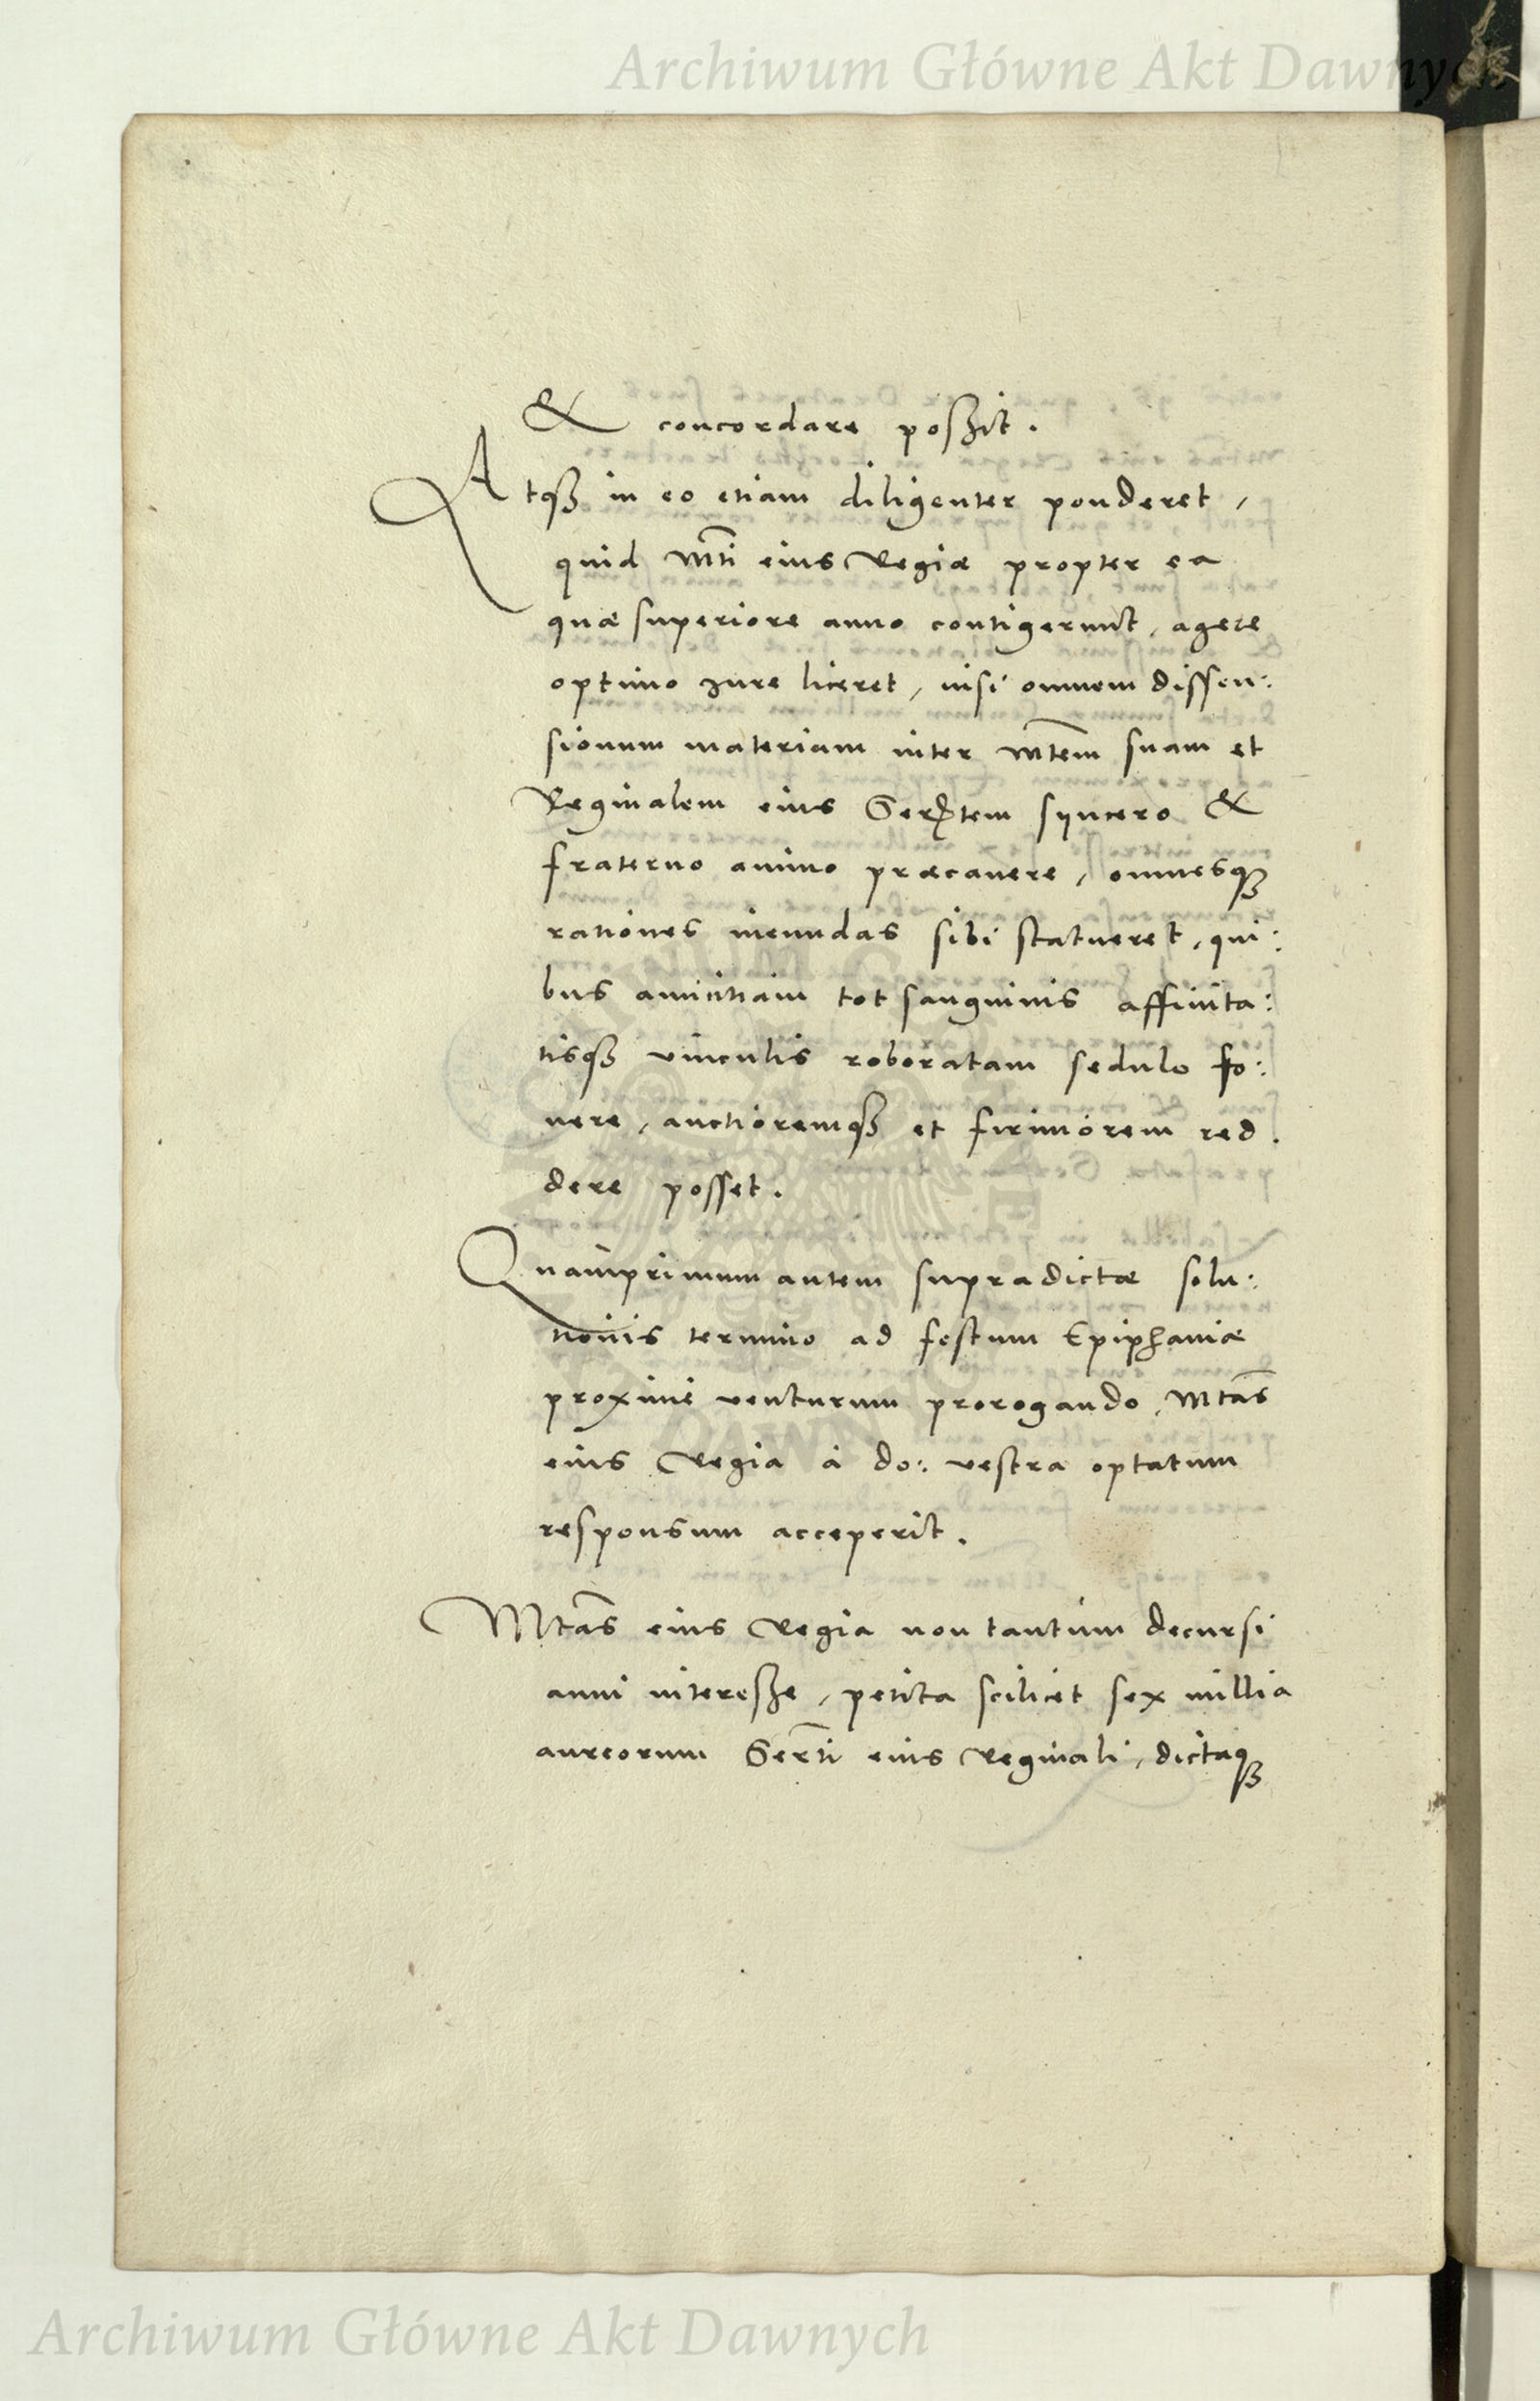 Archiwum Główne Akt Dawnych
& concordare possit.
Atq₃ in eo etiam diligenter ponderet,
quid Mti eius Regiæ propter ea
quæ superiore anno contigerunt, agere
optimo iure liceret, nisi omnem dissen:
sionum materiam inter Mtem suam et
Reginalem eius Sertem syncero &
fraterno animo præcavere, omnesq₃
rationes ineundas sibi statueret, qui:
bus amicitiam tot sanguinis affinita:
tisq₃ vinculis roboratam sedulo fo:
uere, auctioremq₃ et firmiorem red.
dere posset.
Quamprimum autem supradictæ solu:
tionis termino ad festum Epiphaniæ
proxime venturum prorogando, Mtas
eius Regia à do: vestra optatum
responsum acceperit.
Mtas eius Regia non tantum decursi
anni interesse, petita scilicet sex millia
aureorum Serti eius Reginali, dictaq₃
Archiwum Główne Akt Dawnych